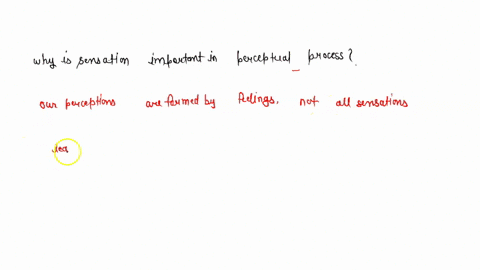 why is sensation important in perceptual process?
our perceptions are formed by feelings. not all sensations
lea